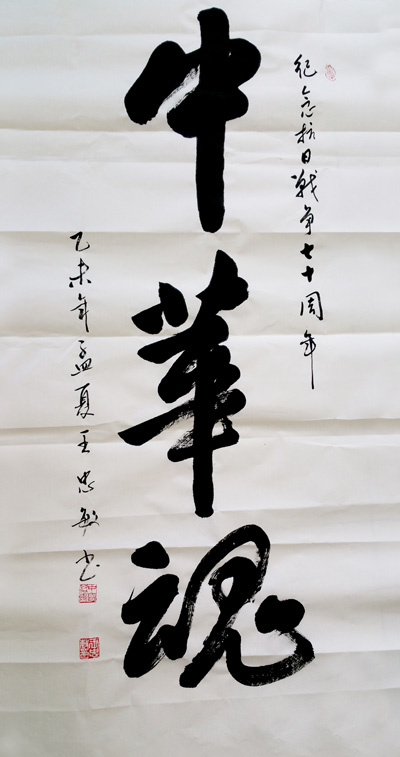 紀念抗日戰争七十周年
中華魂
乙未年孟夏王忠敏书